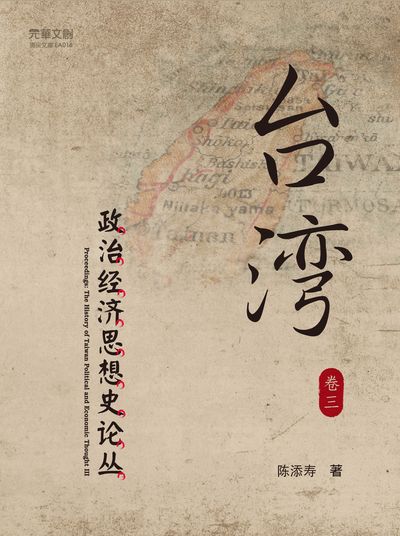 元華文創
頂尖文庫 EA018
台湾
卷三
政治经济思想史论丛
Proceedings: The History of Taiwan Political and Economic Thought III
陈添寿 著
TAIWAN
FORMOSA
Niitaka yama
Tainan